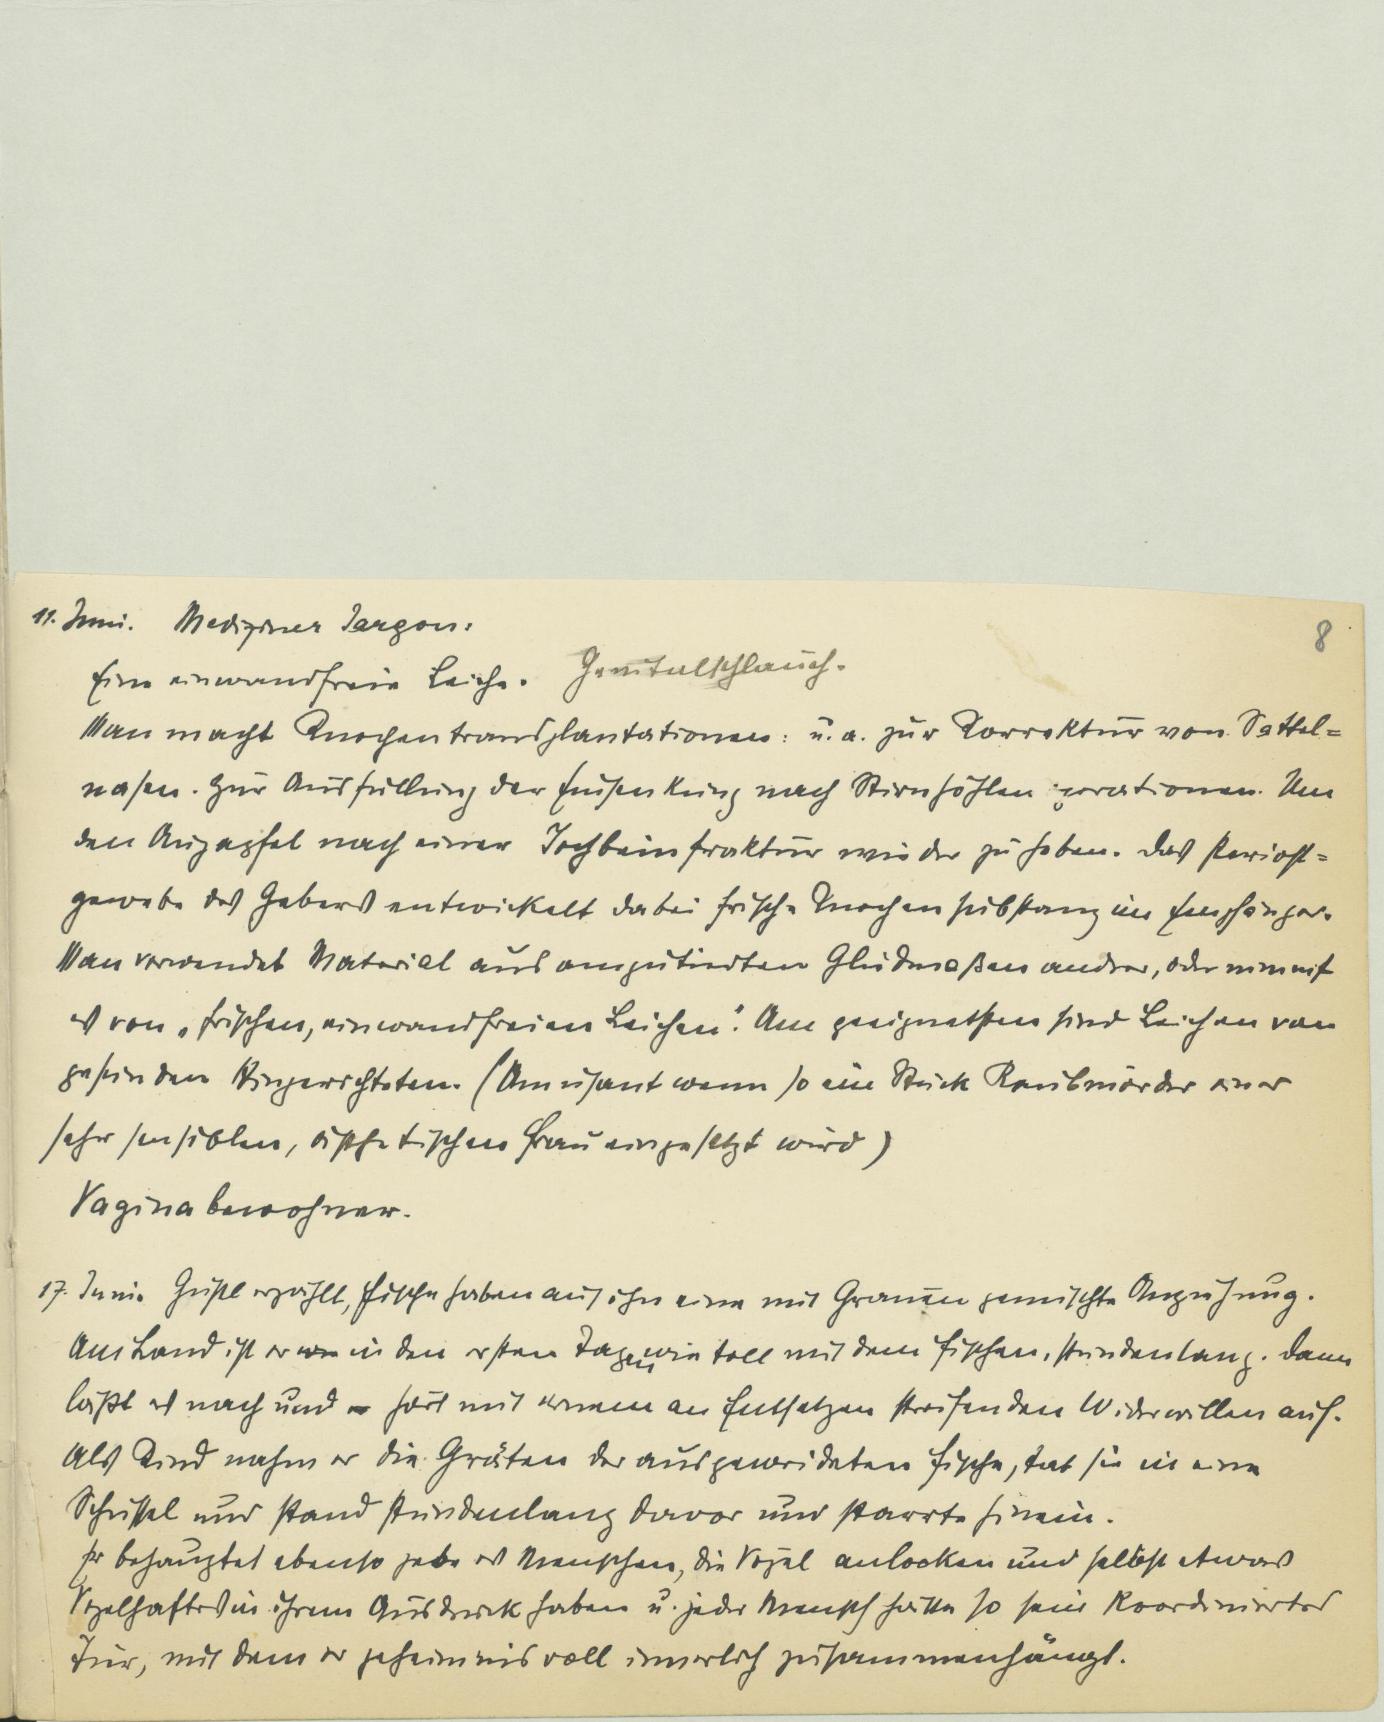 8
11. Juni. Mediziner Jargon:
Eine einwandfreie Leiche. Genitalschlauch.
Man macht Knochentransplantationen: u. a. zur Korrektur von Sattel=
nasen. Zur Ausfüllung der Einsenkung nach Stirnhöhlenoperationen. Um
den Augapfel nach einer Jochbeinfraktur wieder zu heben. Das Periost=
gewebe des Gebers entwickelt dabei frische Knochensubstanz im Empfänger.
Man verwendet Material aus amputierten Gliedmaßen andrer, oder nimmt
es von „frischen, einwandfreien Leichen“. Am geeignetsten sind Leichen von
gesunden Hingerichteten. (Amüsant wenn so ein Stück Raubmörder einer
sehr sensiblen, ästhetischen Frau eingesetzt wird)
Vaginabewohner.
17. Juni. Gustl erzählt, Fische haben auf ihn eine mit Grauen gemischte Anziehung.
Am Land ist er in den ersten Tagen wie toll mit dem Fischen, stundenlang. Dann
läßt es nach und hört mit einem an Entsetzen streifenden Widerwillen auf.
Als Kind nahm er die Gräten der ausgeweideten Fische, tat sie in eine
Schüssel und stand stundenlang davor und starrte hinein.
Er behauptet ebenso gebe es Menschen, die Vögel anlocken und selbst etwas
Vogelhaftes in ihrem Ausdruck haben u. jeder Mensch hätte so sein koordiniertes
Tier, mit dem er geheimnisvoll innerlich zusammenhängt.